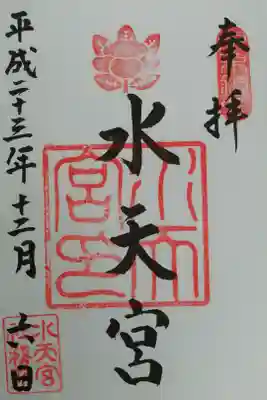 奉拝
水天宮
平成二十三年十二月六日
水天宮